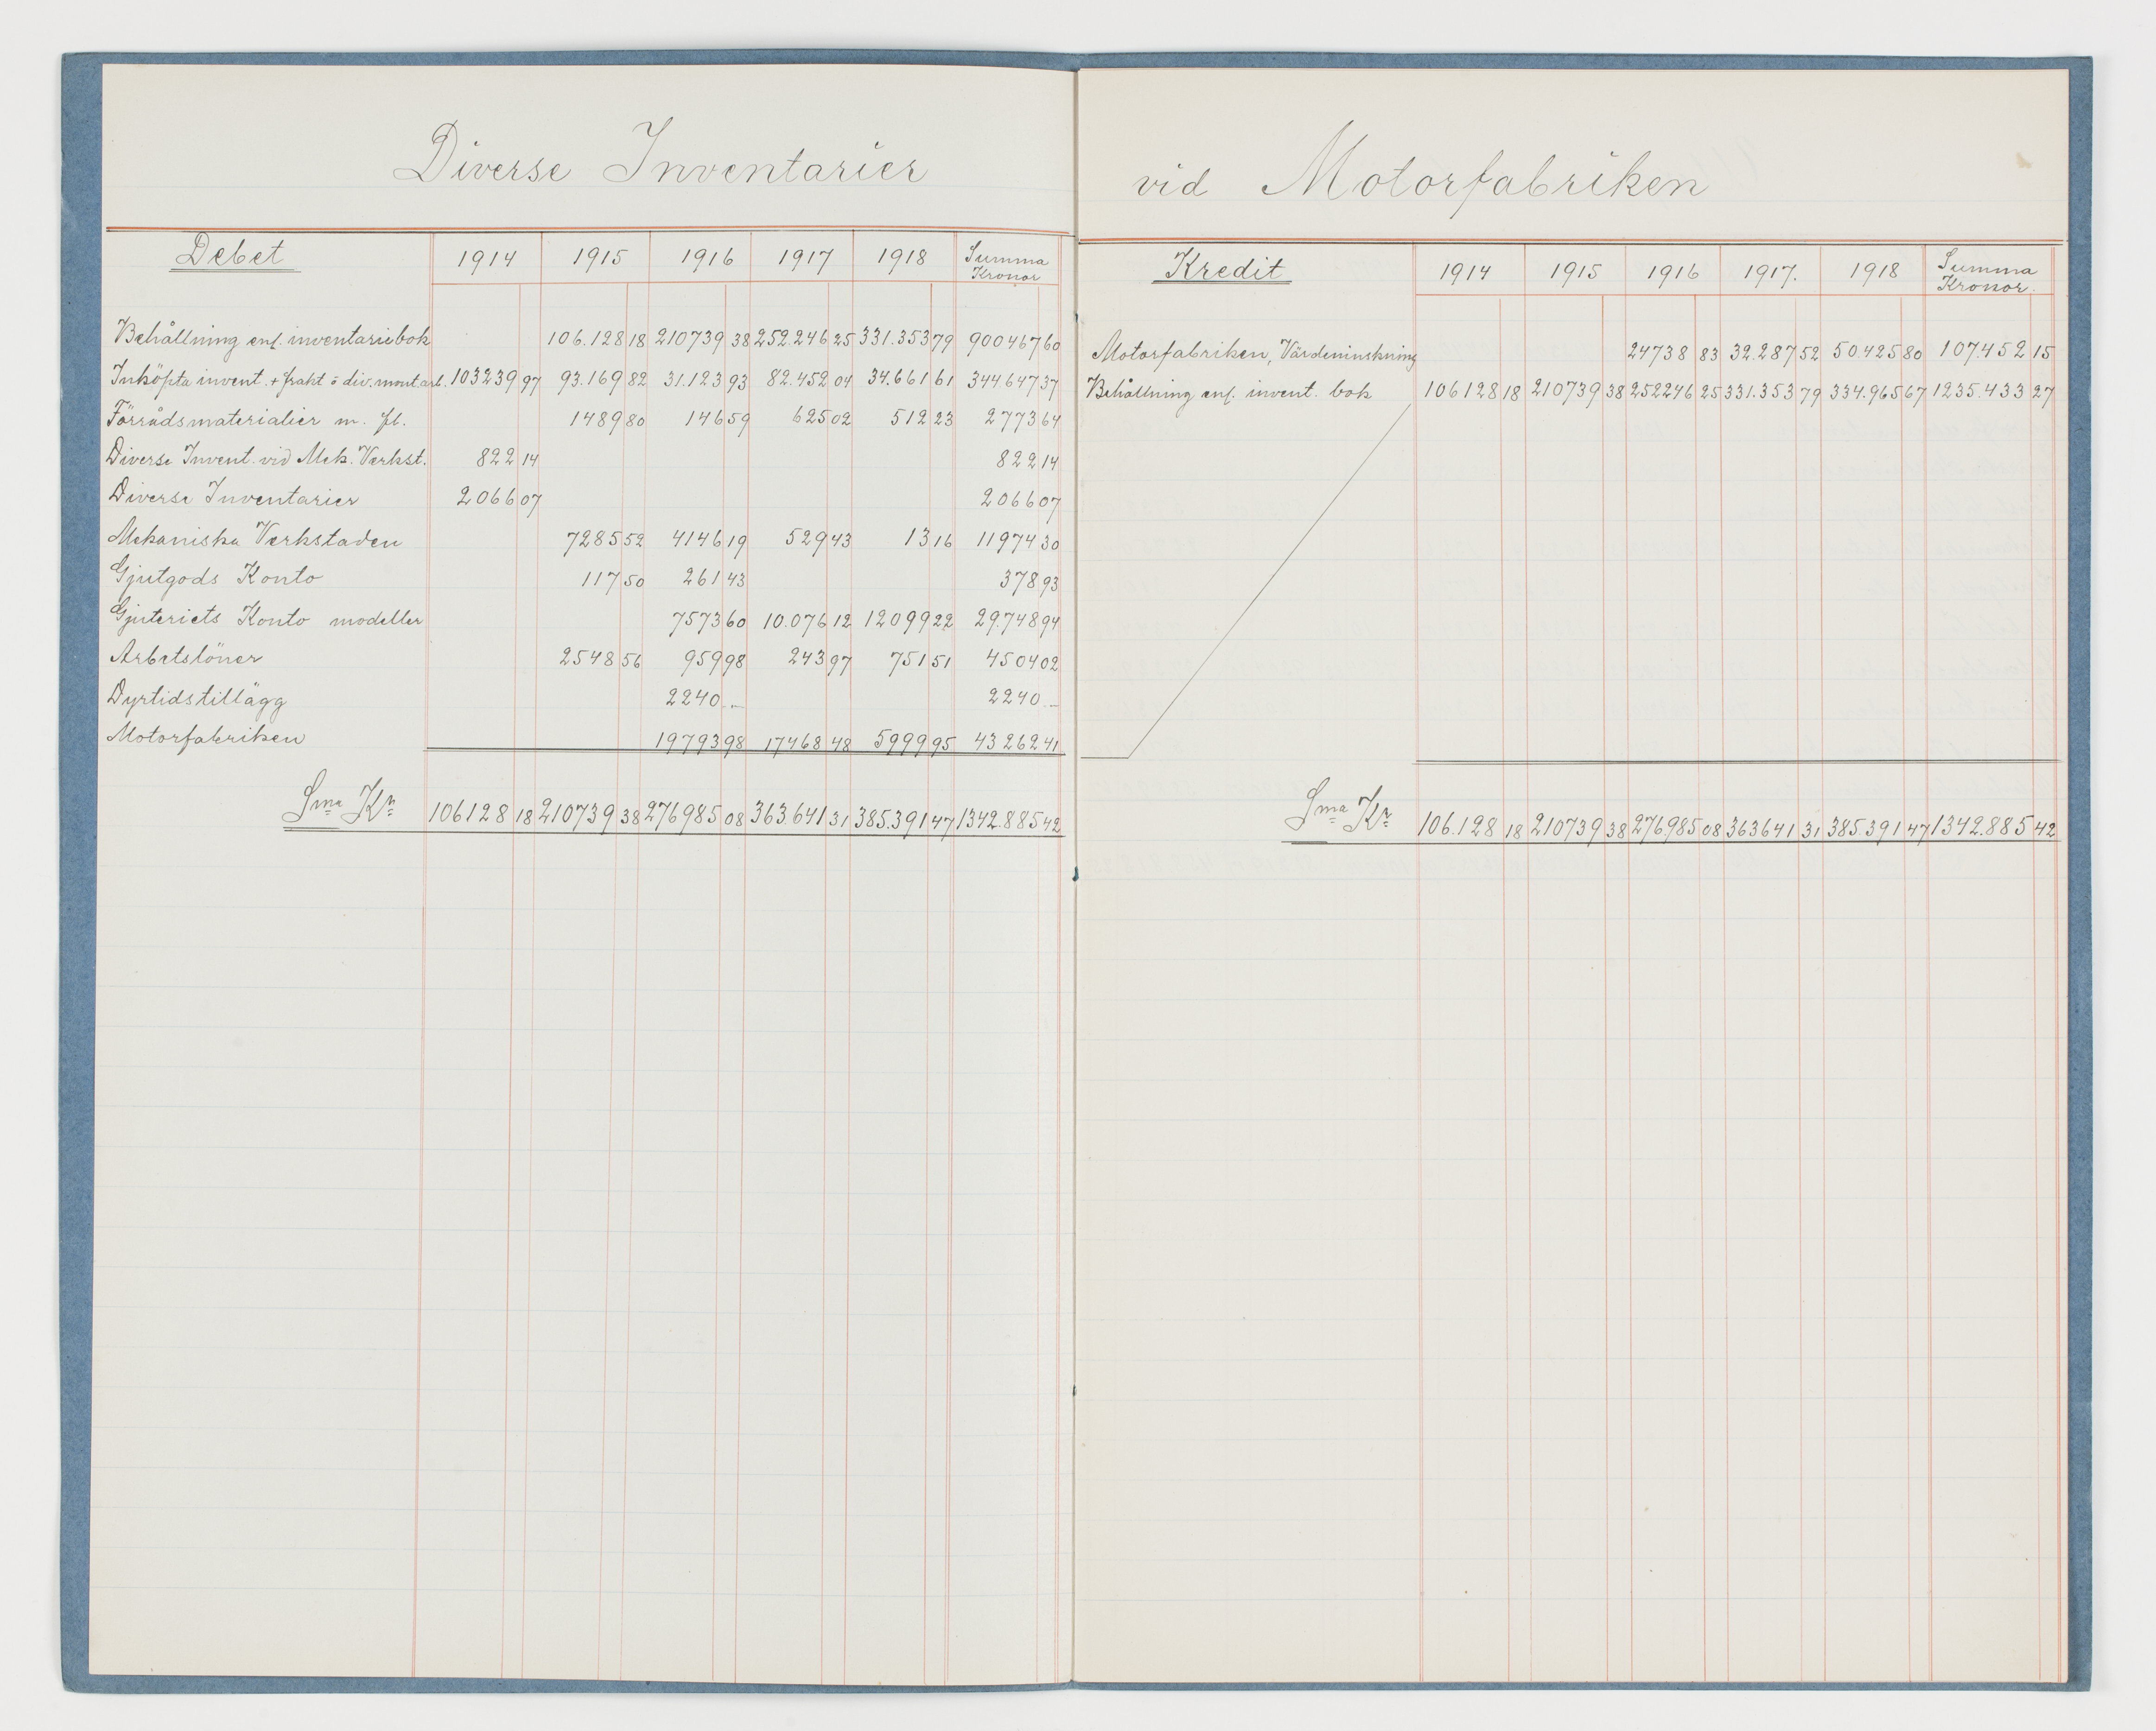 Diverse Inventarier
Debet 1914 1915 1916 1917 1918 Summa Kronor
Behållning enl. inventariebok 106.128 18 210739 38 252.246 25 331.353 79 900467 60
Inköpta invent. + frakt o div. mont arb. 103239 97 93.169 82 31.123 93 82.452 04 34.661 61 344.647 37
Förrådsmaterialier m. fl. 1489 80 146 59 625 02 512 23 2773 64
Diverse Invent. vid Mek. Verkst. 822 14 822 14
Diverse Inventarier 2066 07 2066 07
Mekaniska Verkstaden 7285 52 4146 19 529 43 13 16 11974 30
Gjutgods Konto 117 50 261 43 378 93
Gjuteriets Konto modeller 7573 60 10.076 12 12099 22 29.748 94
Arbetslöner 2548 56 959 98 243 97 751 51 4504 02
Dyrtidstillägg 2240 - 2240 -
Motorfabriken 19793 98 17468 48 5999 95 43262 41
Sma Kr 106128 18 210739 38 276985 08 363.641 31 385.391 47 1342.885 42
vid Motorfabriken
Kredit 1914 1915 1916 1917. 1918 Summa Kronor.
Motorfabriken, Värdeminskning 24738 83 32.287 52 50.425 80 107.452 15
Behållning enl. invent. bok 106128 18 210739 38 252246 25 331.353 79 334.965 67 1235.433 27
Sma Kr 106.128 18 210739 38 276985 08 363641 31 385391 47 1342.885 42